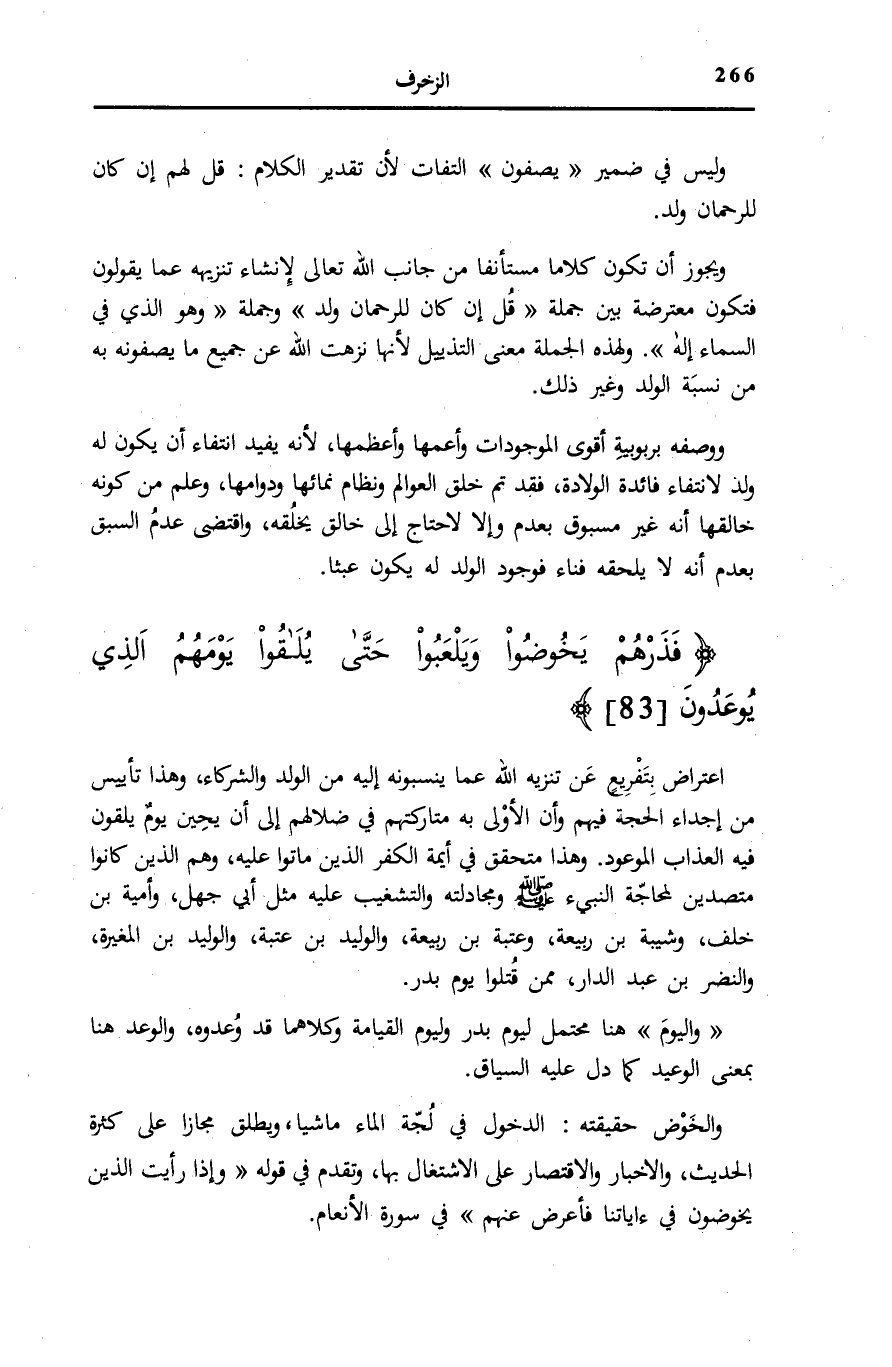 266
الزخرف
وليس في ضمير « يصفون » التفات لأن تقدير الكلام : قل لهم إن كان
للرحمان ولد.
ويجوز أن تكون كلاما مستأنفا من جانب الله تعالى لإِنشاء تنزيهه عما يقولون
فتكون معترضة بين جملة « قُل إن كان للرحمان ولد » وجملة « وهو الذي في
السماء إلهٰ ». ولهذه الجملة معنى التذييل لأنها نزهت الله عن جميع ما يصفونه به
من نسبَة الولد وغير ذلك.
ووصفه بربوبيةِ أقوى الموجودات وأعمها وأعظمها، لأنه يفيد انتفاء أن يكون له
ولذ لانتفاء فائدة الولادة، فقد تم خلق العوالم ونظام نمائها ودوامها، وعلم من كونه
خالقها أنه غير مسبوق بعدم وإلا لاحتاج إلى خالق يخلُقه، واقتضى عدمُ السبق
بعدم أنه لا يلحقه فناء فوجود الولد له يكون عبثا.
﴿ فَذَرْهُمْ يَخُوضُواْ وَيَلْعَبُواْ حَتَّىٰ يُلَـٰقُواْ يَوْمَهُمُ اَلذِي
يُوعَدُونَ [83] ﴾
اعتراض بِتَفْرِيعٍ عَن تنزيه الله عما ينسبونه إليه من الولد والشركاء، وهذا تأييس
من إجداء الحجة فيهم وأن الأوْلى به متاركتهم في ضلالهم إلى أن يحِين يومٌ يلقون
فيه العذاب الموعود. وهذا متحقق في أيمة الكفر الذين ماتوا عليه، وهم الذين كانوا
متصدين لمحاجّة النبيء ﷺ ومجادلته والتشغيب عليه مثل أبي جهل، وأمية بن
خلف، وشيبة بن ربيعة، وعتبة بن ربيعة، والوليد بن عتبة، والوليد بن المغيرة،
والنضر بن عبد الدار، ممن قُتلوا يوم بدر.
« واليومَ » هنا محتمل ليوم بدر وليوم القيامة وكلاهما قد وُعدوه، والوعد هنا
بمعنى الوعيد كما دل عليه السياق.
والخَوْض حقيقته : الدخول في لُجّة الماء ماشيا، ويطلق مجازا على كثرة
الحديث، والاخبار والاقتصار على الاشتغال بها، وتقدم في قوله « وإذا رأيت الذين
يخوضون في ءاياتنا فأعرض عنهم » في سورة الأنعام.